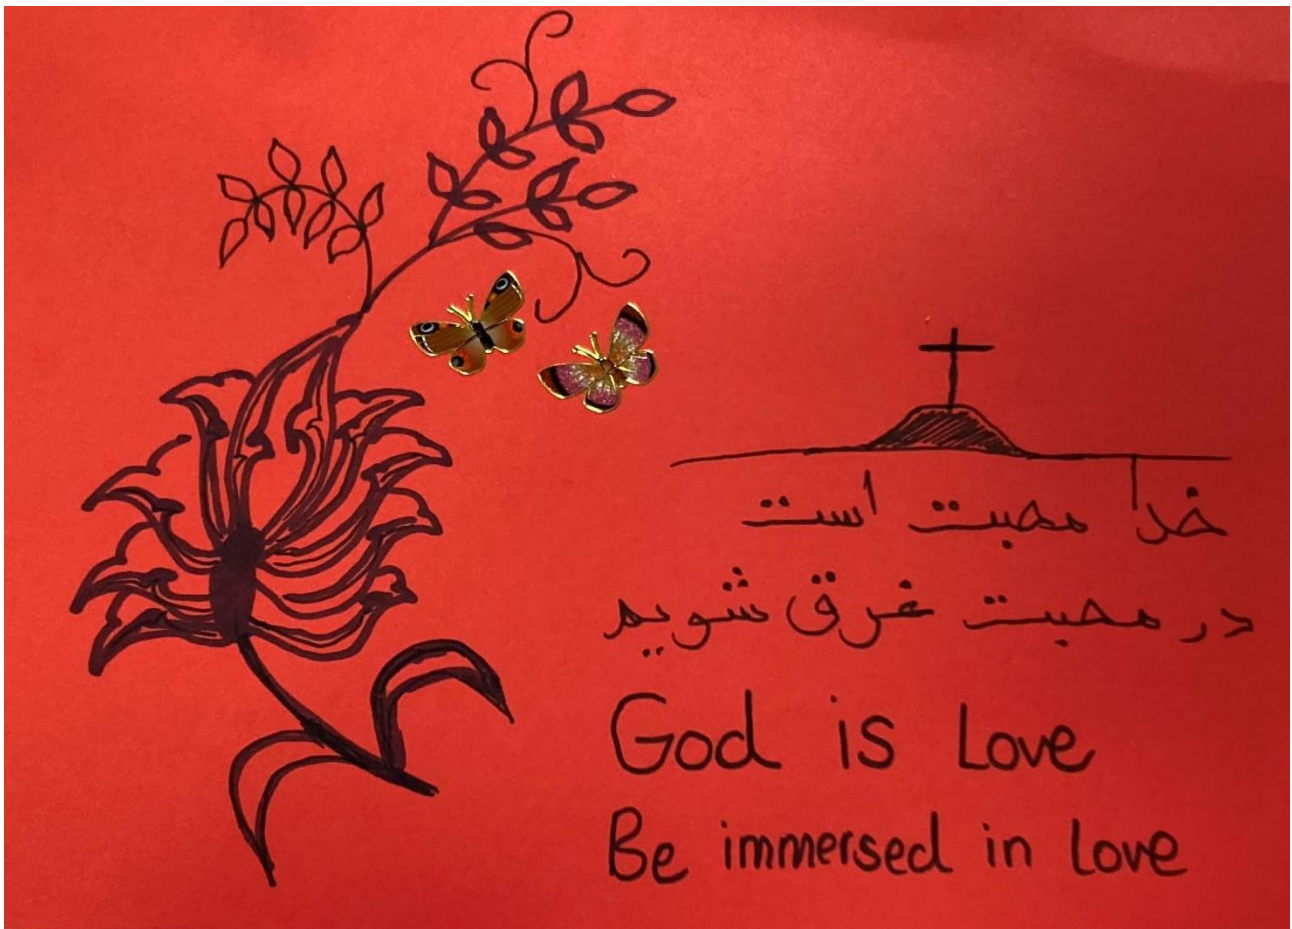 خدا محبت است
در محبت غرق شویم
God is Love
Be immersed in love